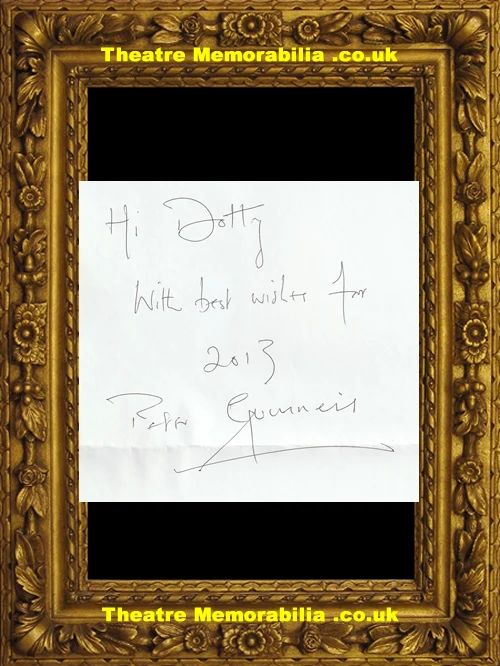 Theatre Memorabilia .co.uk
Hi Dotty
With best wishes for
2013
Peter Guinness
Theatre Memorabilia .co.uk